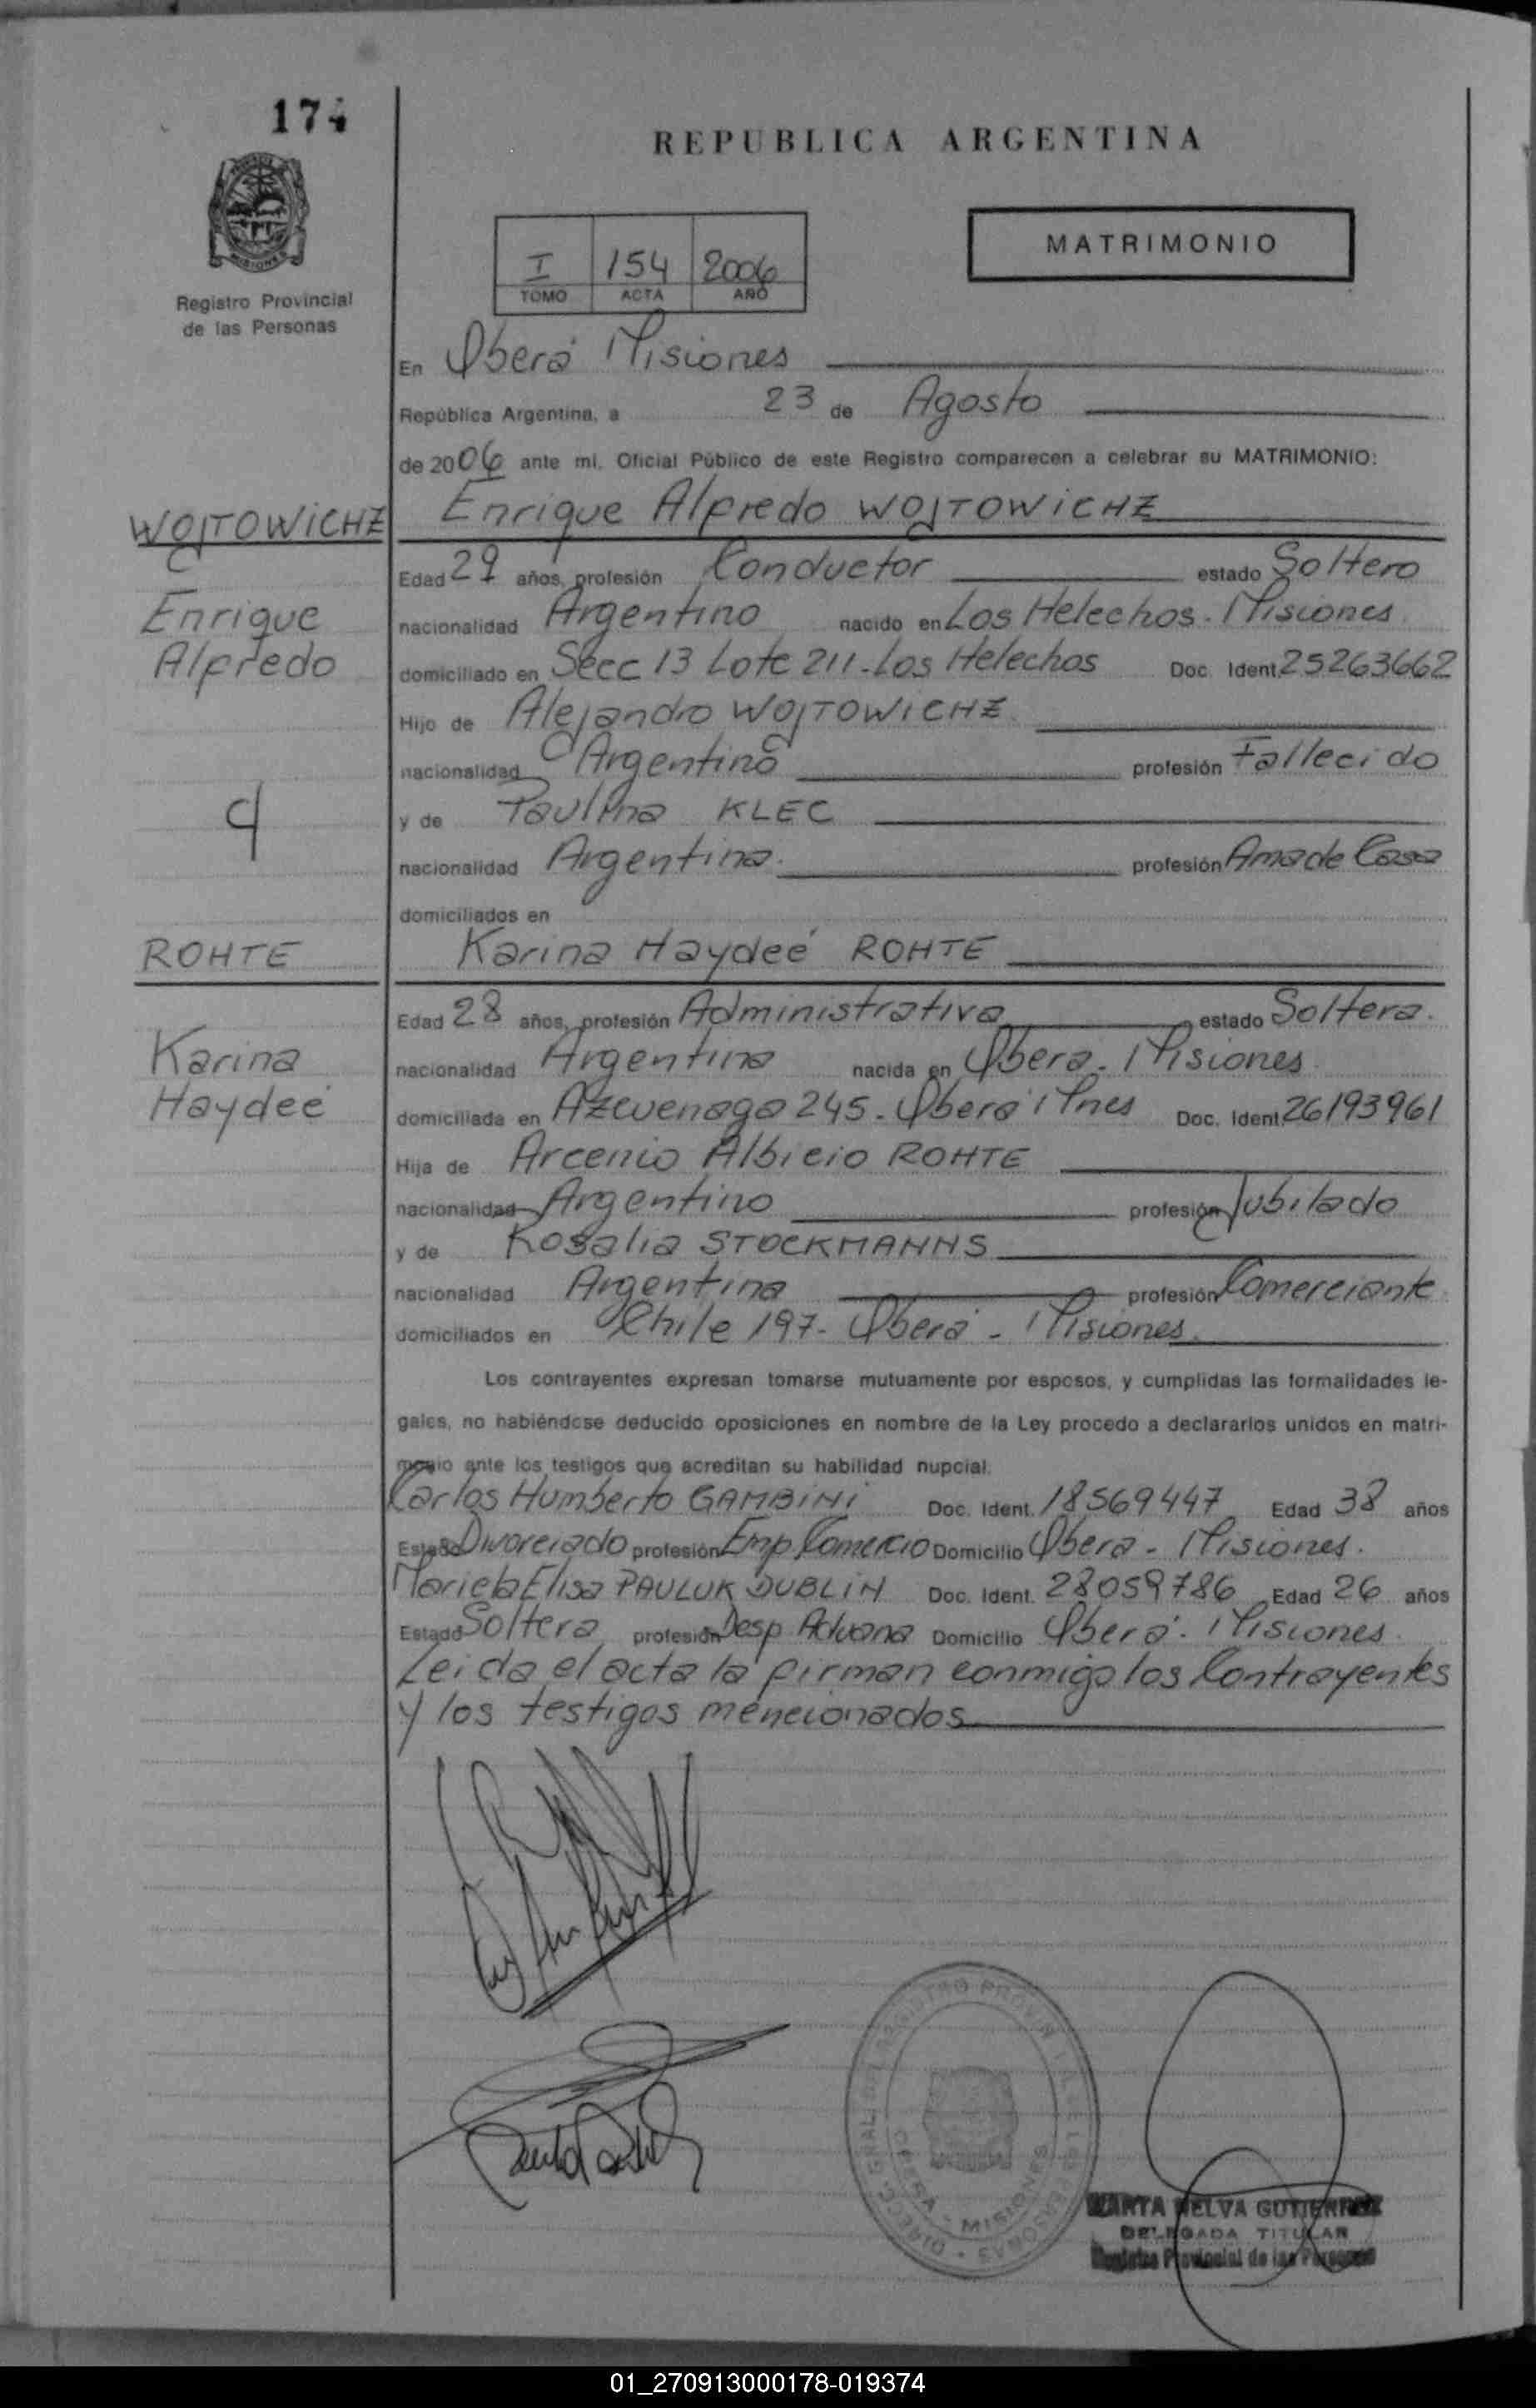 174
REPUBLICA ARGENTINA
MATRIMONIO
I 154 2006
TOMO ACTA AÑO
MISIONES
Registro Provincial
de las Personas
En Oberá Misiones
República Argentina, a 23 de Agosto
de 2006 ante mi, Oficial Público de este Registro comparecen a celebrar su MATRIMONIO:
WOJTOWICHZ
Enrique Alfredo WOJTOWICHZ
Edad 29 años, profesión Conductor estado Soltero
Enrique
nacionalidad Argentino nacido en Los Helechos. Misiones
Alfredo
domiciliado en Secc 13 Lote 211-Los Helechos Doc. Ident. 25263662
Hijo de Alejandro WOJTOWICHZ
nacionalidad Argentino profesión Fallecido
y de Paulina KLEC
nacionalidad Argentina. profesión Ama de Casa
domiciliados en
ROHTE
Karina Haydeé ROHTE
Edad 28 años, profesión Administrativa estado Soltera.
Karina
nacionalidad Argentina nacida en Oberá. Misiones
Haydeé
domiciliada en Azcuenaga 245- Oberá Mnes Doc. Ident. 26193961
Hija de Arcenio Albicio ROHTE
nacionalidad Argentino profesión Jubilado
y de Rosalia STOCKMANNS
nacionalidad Argentina profesión Comerciante
domiciliados en Chile 197- Oberá - Misiones.
Los contrayentes expresan tomarse mutuamente por esposos, y cumplidas las formalidades le-
gales, no habiéndose deducido oposiciones en nombre de la Ley procedo a declararlos unidos en matri-
monio ante los testigos que acreditan su habilidad nupcial.
Carlos Humberto GAMBINI Doc. Ident. 18569447 Edad 38 años
Estado Divorciado profesión Emp Comercio Domicilio Oberá - Misiones.
Mariela Elisa PAULUK DUBLIN Doc. Ident. 28059786 Edad 26 años
Estado Soltera profesión Desp Aduana Domicilio Oberá. Misiones
Leida el acta la firman conmigo los Contrayentes
y los testigos mencionados
MARTA NELVA GUTIERREZ
DELEGADA TITULAR
Registro Provincial de las Personas
01_270913000178-019374